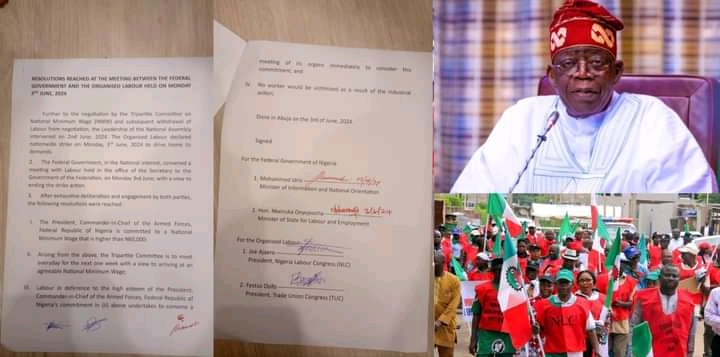 RESOLUTIONS REACHED AT THE MEETING BETWEEN THE FEDERAL
GOVERNMENT AND THE ORGANISED LABOUR HELD ON MONDAY
3RD JUNE, 2024
Further to the negotiation by the Tripartite Committee on
National Minimum Wage (NMW) and subsequent withdrawal of
Labour from negotiation, the Leadership of the National Assembly
intervened on 2nd June, 2024. The Organised Labour declared
nationwide strike on Monday, 3rd June, 2024 to drive home its
demands.
2. The Federal Government, in the National interest, convened a
meeting with Labour held in the office of the Secretary to the
Government of the Federation, on Monday 3rd June, with a view to
ending the strike action.
3. After exhaustive deliberation and engagement by both parties,
the following resolutions were reached:
i. The President, Commander-in-Chief of the Armed Forces,
Federal Republic of Nigeria is committed to a National
Minimum Wage that is higher than N60,000;
ii. Arising from the above, the Tripartite Committee is to meet
everyday for the next one week with a view to arriving at an
agreeable National Minimum Wage;
iii. Labour in deference to the high esteem of the President,
Commander-in-Chief of the Armed Forces, Federal Republic of
Nigeria's commitment in (ii) above undertakes to convene a
meeting of its organs immediately to consider this
commitment; and
iv. No worker would be victimised as a result of the industrial
action.
Done in Abuja on the 3rd of June, 2024
Signed
For the Federal Government of Nigeria
1. Mohammed Idris
Minister of Information and National Orientation
2. Hon. Nkeiruka Onyejeocha
Minister of State for Labour and Employment
For the Organised Labour
1. Joe Ajaero
President, Nigeria Labour Congress (NLC)
2. Festus Osifo
President, Trade Union Congress (TUC)
NLC